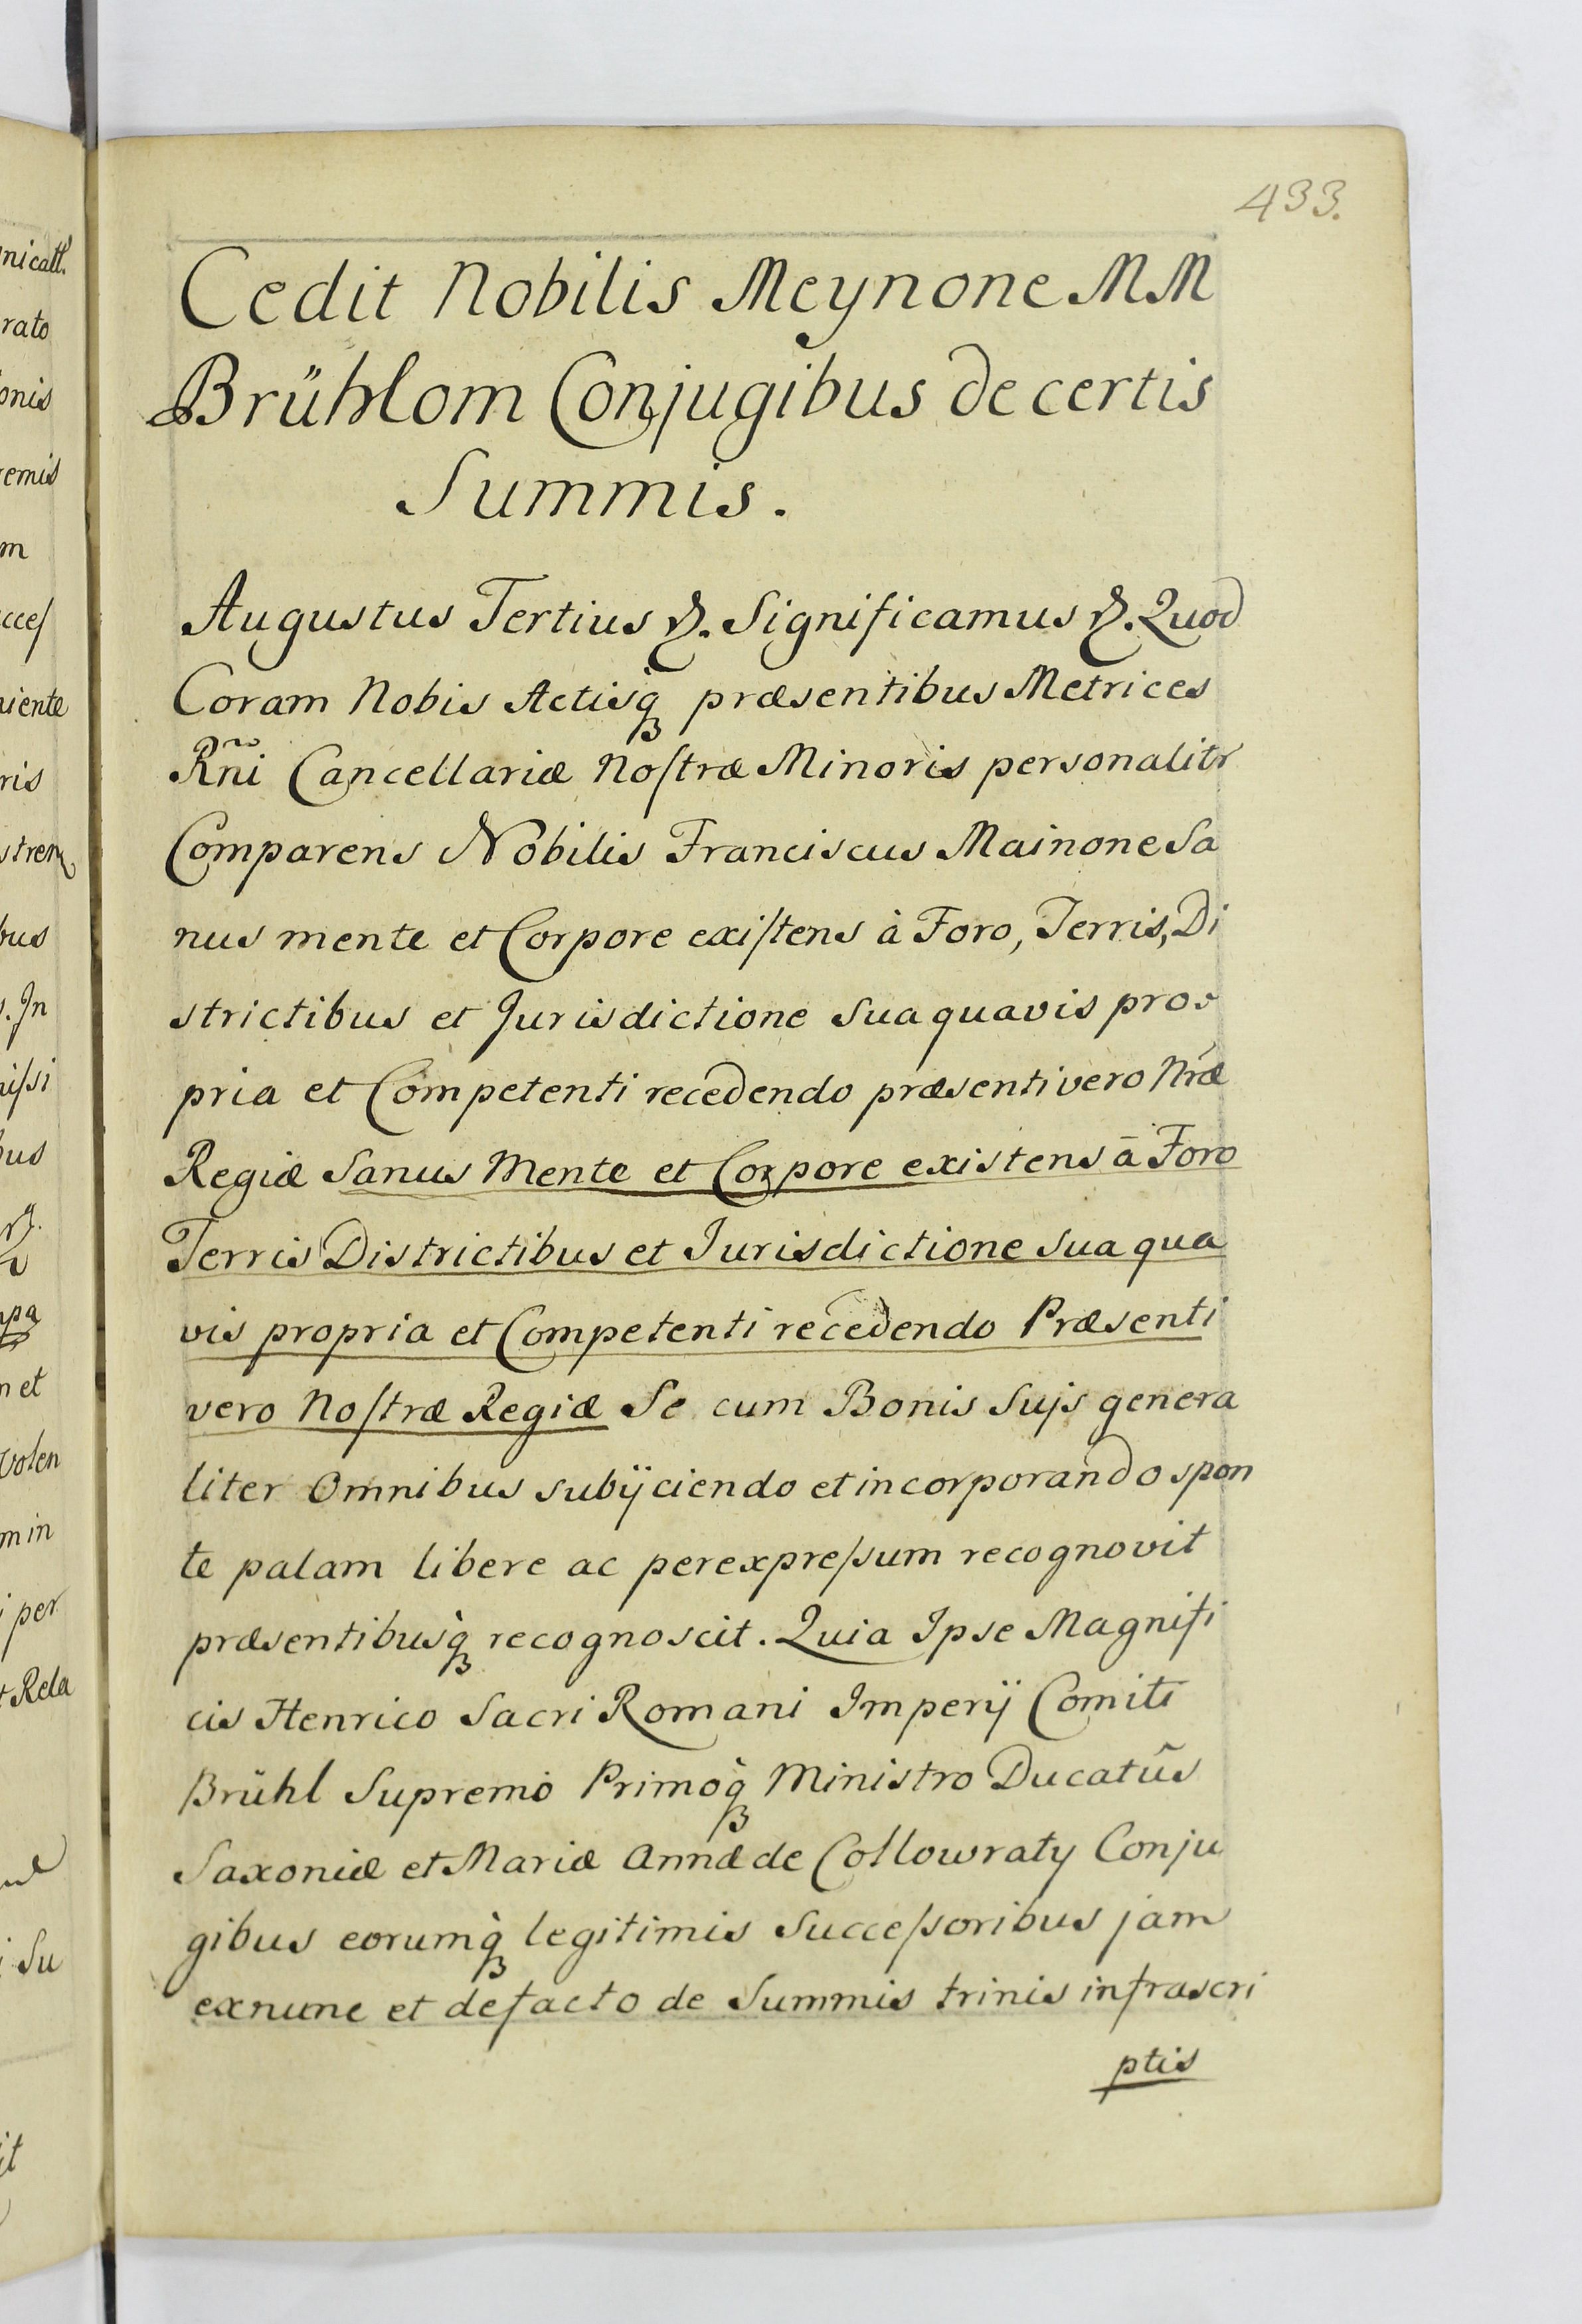 433.
Cedit Nobilis Meynone MM
Brühlom Conjugibus de certis
Summis.
Augustus Tertius &. Significamus &. Quod
Coram Nobis Actisq̀ præsentibus Metrices
Rñi Cancellariæ Noſtræ Minoris personalitr
Comparens Nobilis Franciscus Mainone Sa
nus mente et Corpore exiſtens à Foro, Terris, Di
strictibus et Jurisdictione sua quavis pro
pria et Competenti recedendo præsenti vero Nræ
Regiæ Sanus Mente et Corpore existens ā Foro
Terris Districtibus et Jurisdictione sua qua
vis propria et Competenti recedendo Præsenti
vero Noſtræ Regiæ Se cum Bonis Sujs genera
liter Omnibus subijciendo et incorporando spon
te palam libere ac per expreſsum recognovit
præsentibusq̀ recognoscit. Quia Ipse Magnifi
cis Henrico Sacri Romani Imperij Comiti
Brühl Supremo Primoq̀ Ministro Ducatûs
Saxoniæ et Mariæ Annæ de Collowraty Conju
gibus eorumq̀ legitimis Succeſsoribus jam
exnunc et defacto de Summis trinis infrascri
ptis